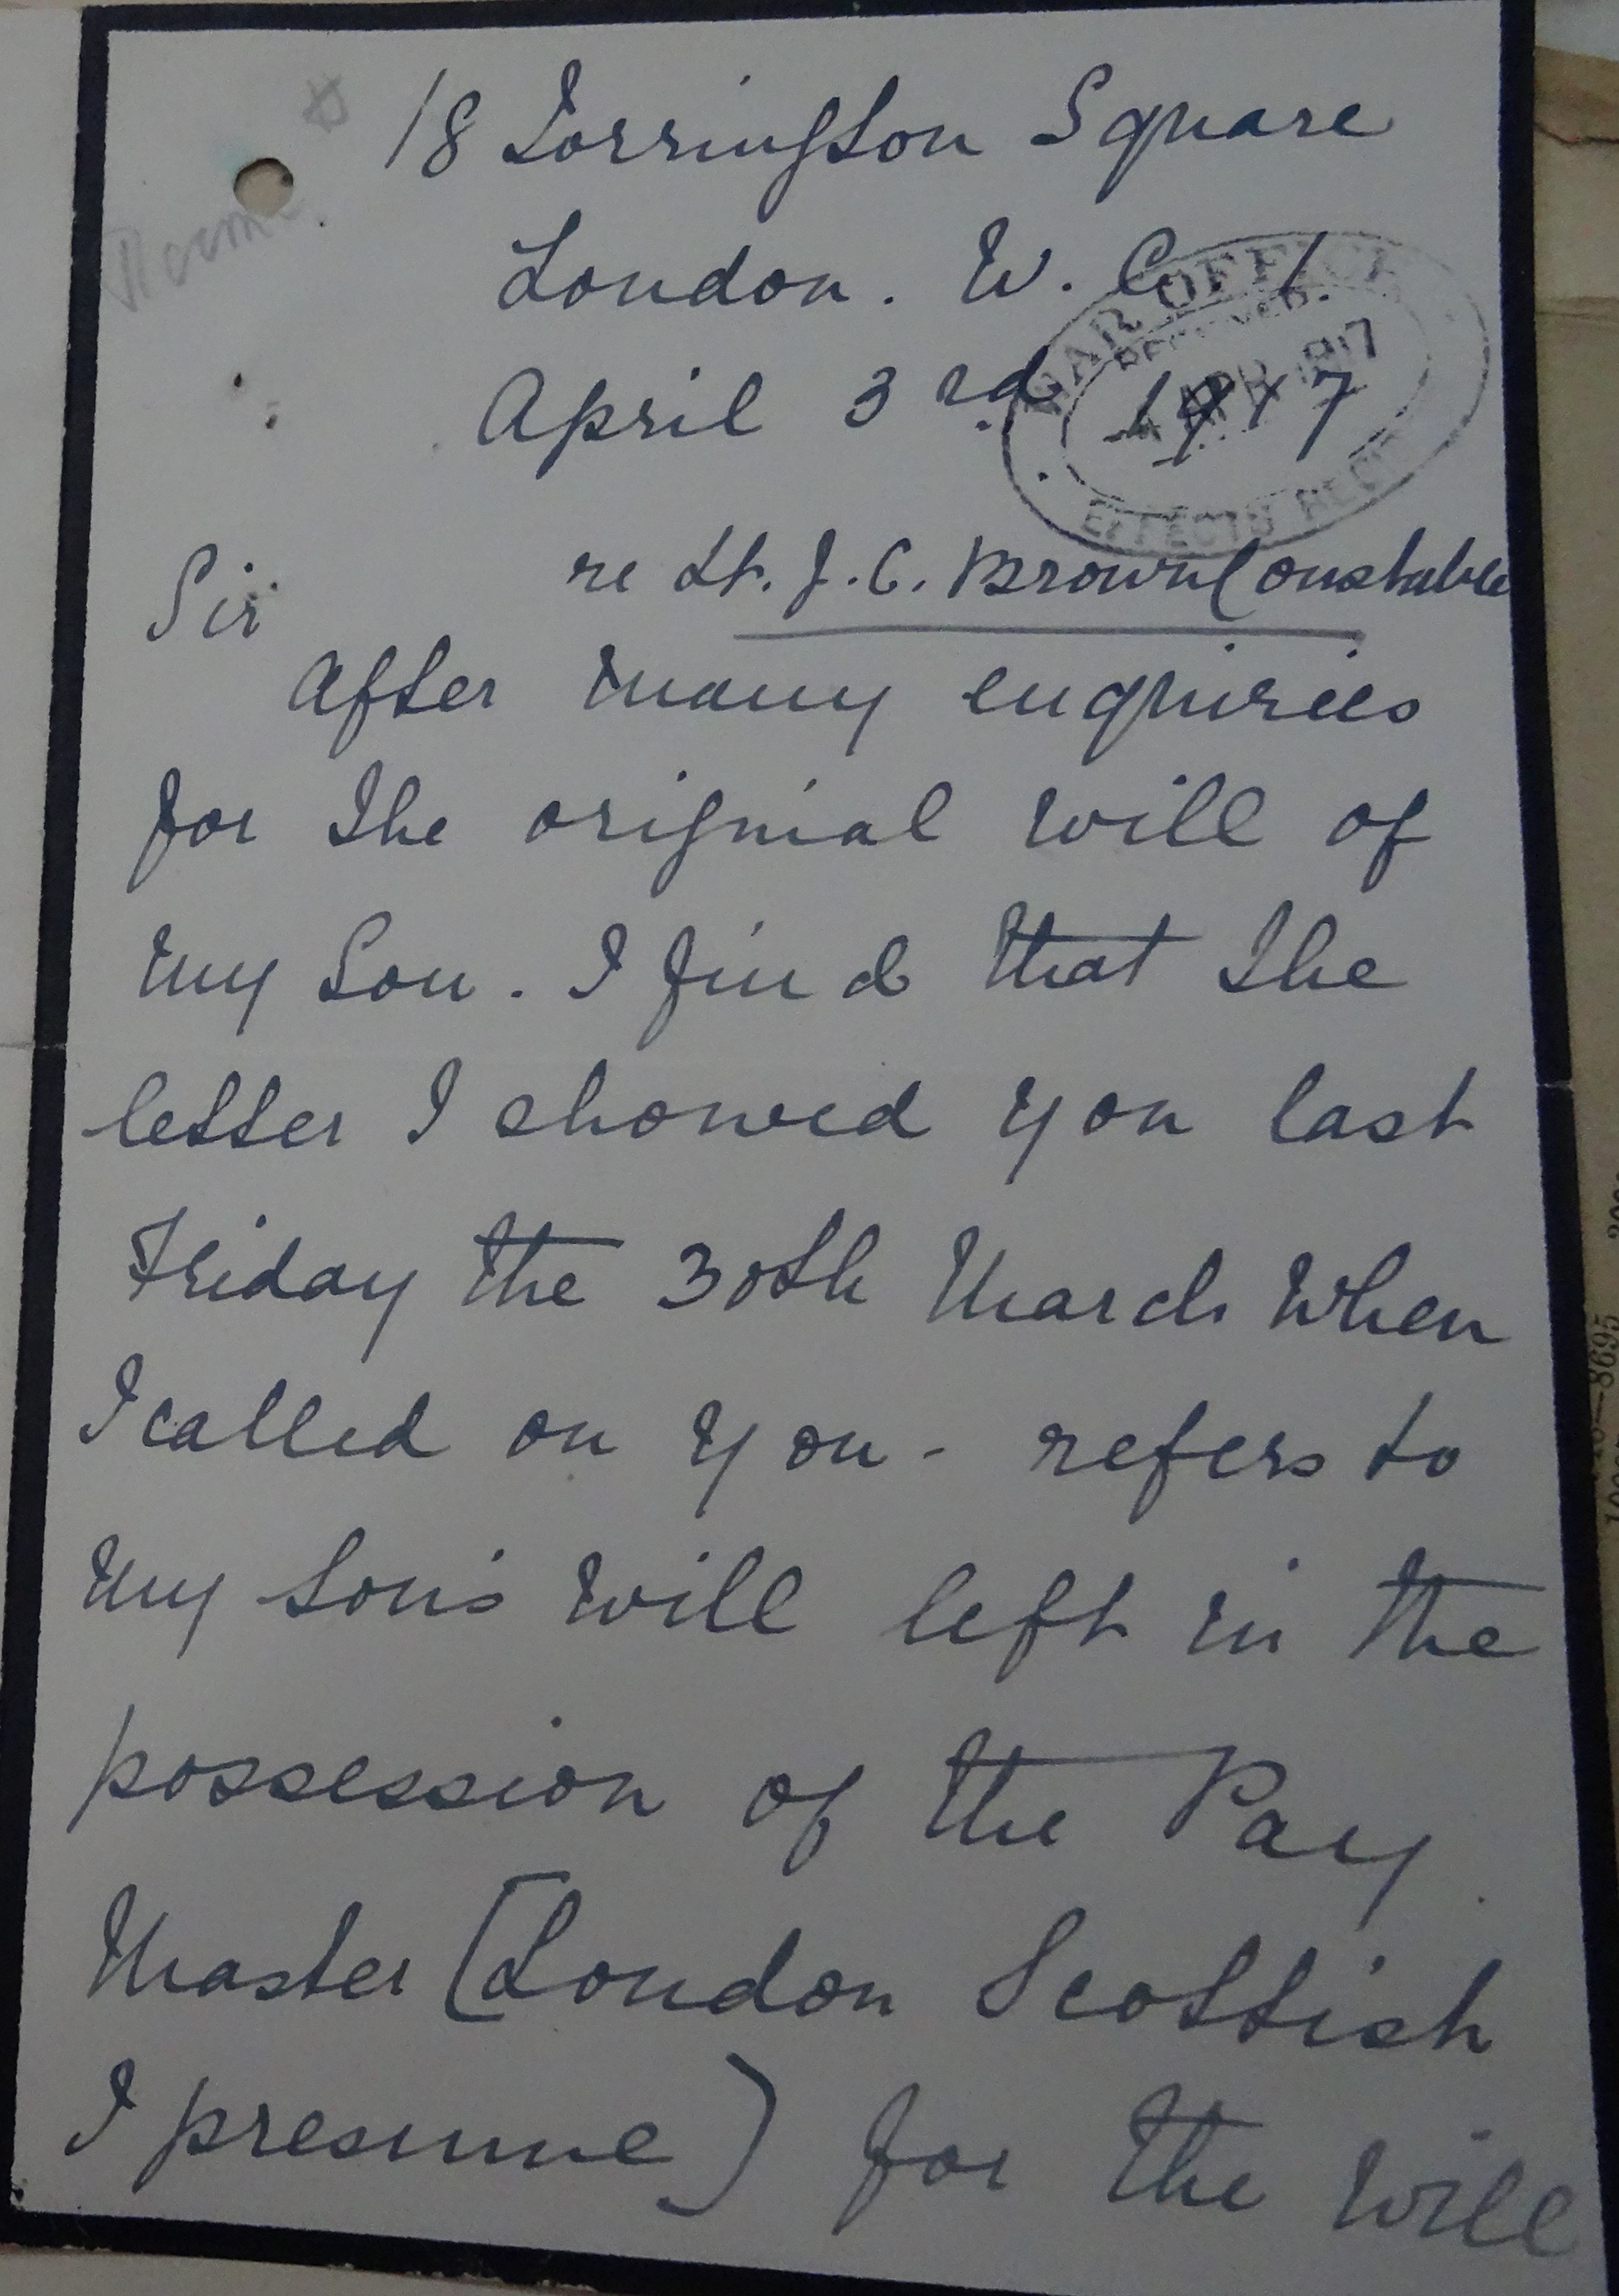 18 Torrington Square
London. W. C. 1.
April 3rd. 1917
WAR OFFICE
RECEIVED.
4 APR 1917
EFFECTS
Sir re Lt. J. C. Brown Constable
After many enquiries
for the original will of
my Son. I find that the
letter I showed you last
Friday the 30th March when
I called on you - refers to
my son's will left in the
possession of the Pay
Master (London Scottish
I presume) for the will
8695